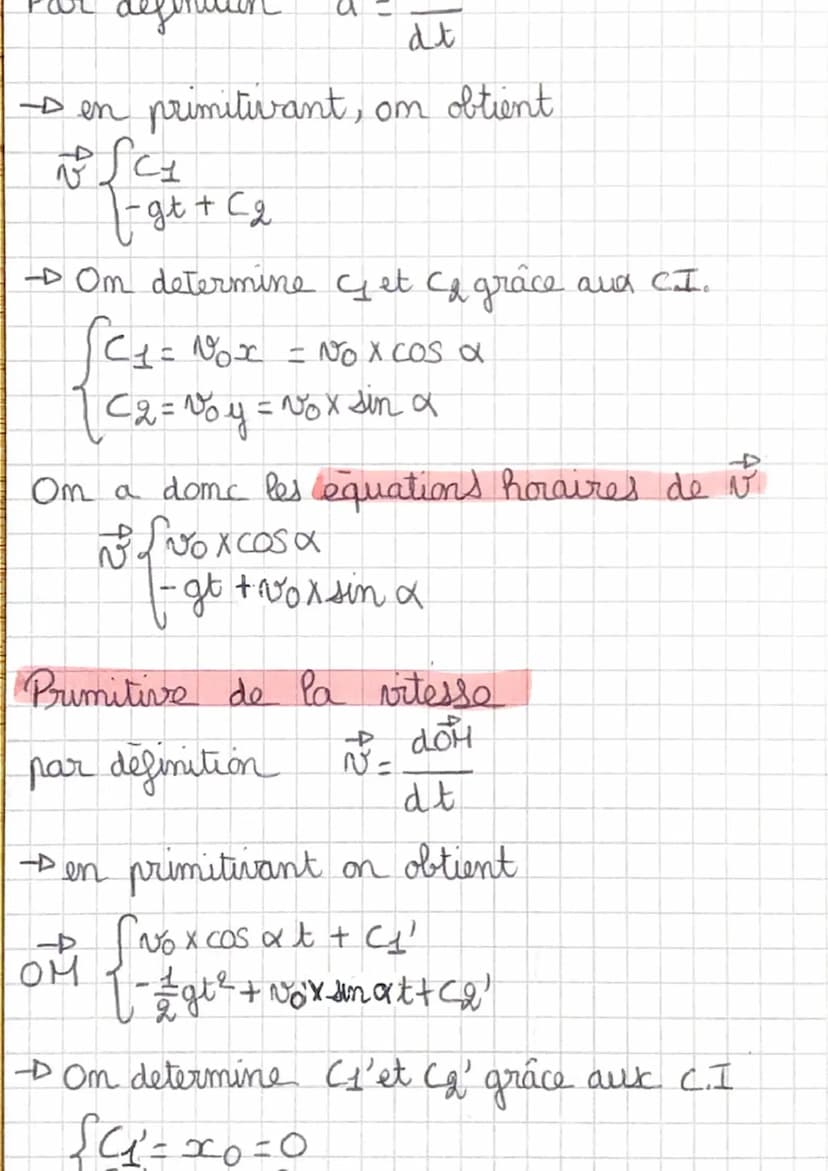 Par définition a =
dt
→ en primitivant, on obtient
v⃗ { C1
-gt + C2
→ On determine C1 et C2 grâce aux CI.
{ C1 = v0x = v0 x cos α
C2 = v0y = v0 x sin α
On a donc les équations horaires de v⃗
v⃗ { v0 x cos α
-gt + v0 x sin α
Primitive de la vitesse
par définition v⃗ = dOM⃗ / dt
→ en primitivant on obtient
OM⃗ { v0 x cos α t + C1'
-1/2 gt² + v0 x sin α t + C2'
→ On determine C1' et C2' grâce aux C.I
{ C1' = x0 = 0